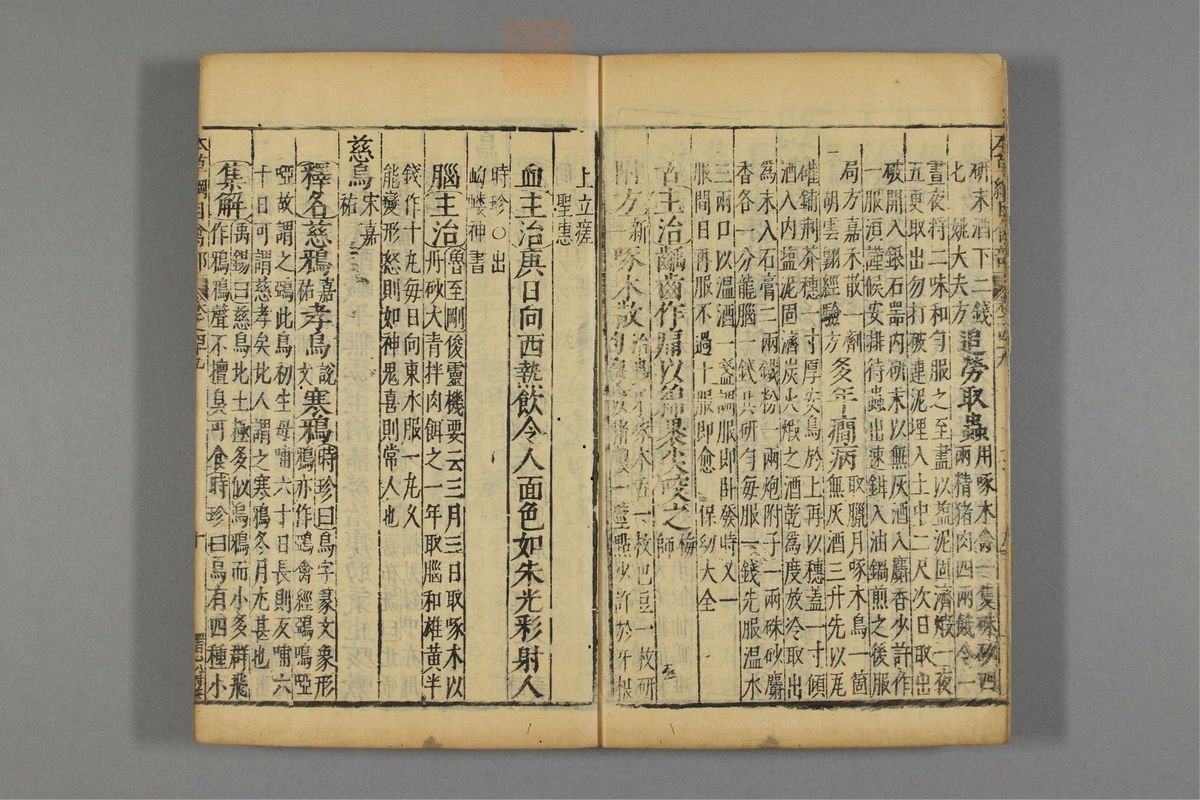 研末酒下二錢
匕 姚大夫方 追勞取蟲 用啄木禽一隻硃砂四兩精猪肉四兩餓令一
晝夜將二味和勻服之至盡以鹽泥固濟煅一夜
五更取出勿打破連泥埋入土中二尺次日取出
破開入銀石器內研末以無灰酒入麝香少許作
一服須謹候安排待蟲出速鉗入油鍋煎之後服
局方嘉禾散一劑 胡雲翱經驗方 多年癇病 取臘月啄木鳥一箇無灰酒三升先以瓦
罐鋪荆芥穗一寸厚安鳥於上再以穗蓋一寸傾
酒入內塩泥固濟炭火煅之酒乾爲度放冷取出
爲末入石膏二兩鐵粉一兩炮附子一兩硃砂麝
香各一分龍腦一錢共研勻每服一錢先服温水
三兩口以温酒一盞調服即臥發時又一
服間日再服不過十服即愈 保幼大全
舌主治齲齒作痛以綿裹尖咬之 梅師
附方 新一 啄木散 一枚巴豆一枚研
一莖點少許於牙根
上立瘥 聖惠
血主治庚日向西熱飲令人面色如朱光彩射人
時珍○出岣嶁神書
腦主治 魯至剛俊靈機要云三月三日取啄木以丹砂大青拌肉餌之一年取腦和雄黃半
錢作十丸每日向東水服一丸久
能變形怒則如神鬼喜則常人也
慈烏 宋嘉祐
釋名慈鴉 嘉祐 孝烏 說文 寒鴉 時珍曰烏字篆文象形鴉亦作鵶禽經鵶鳴啞
啞故謂之鵶此鳥初生母哺六十日長則反哺六
十日可謂慈孝矣北人謂之寒鴉冬月尤甚也
集解 禹錫曰慈烏北土極多似烏鴉而小多群飛作鴉鴉聲不擅臭可食時珍曰烏有四種小
本草綱目禽部 卷之四九